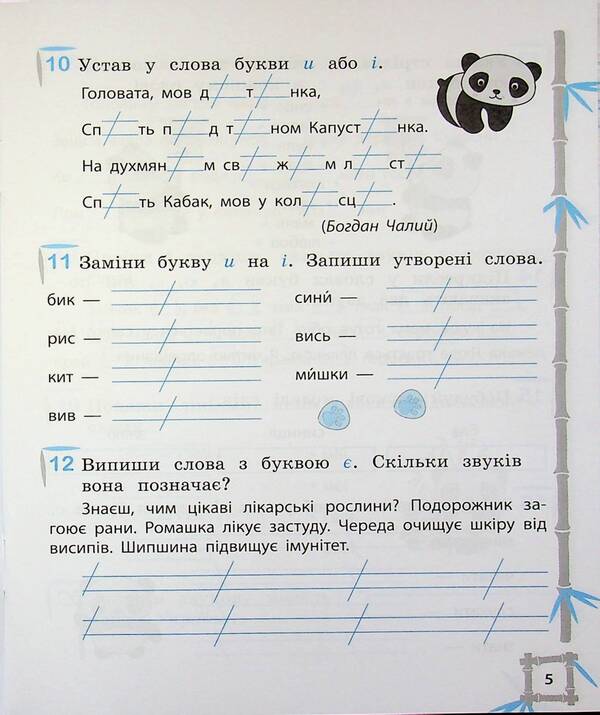 10 Устав у слова букви и або і.
Головата, мов д__т__нка,
Сп__ть п__д т__ном Капуст__нка.
На духмян__м св__ж__м л__ст__
Сп__ть Кабак, мов у кол__сц__.
(Богдан Чалий)
11 Заміни букву и на і. Запиши утворені слова.
бик — сині́ —
рис — вись —
кит — ми́шки —
вив —
12 Випиши слова з буквою є. Скільки звуків
вона позначає?
Знаєш, чим цікаві лікарські рослини? Подорожник за-
гоює рани. Ромашка лікує застуду. Череда очищує шкіру від
висипів. Шипшина підвищує імунітет.
5